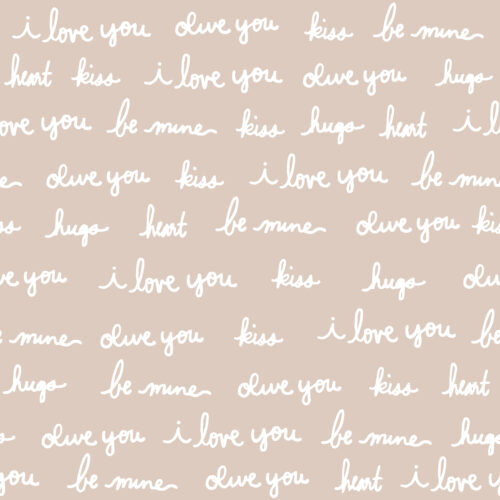 i love you olive you kiss be mine
heart kiss i love you olive you hugs
ove you be mine kiss hugs heart i l
e olive you kiss i love you be min
ss hugs heart be mine olive you kis
ve you i love you kiss hugs oliv
mine olive you kiss i love you be
hugs be mine olive you kiss heart
s olive you i love you be mine hugs
you be mine olive you heart i love